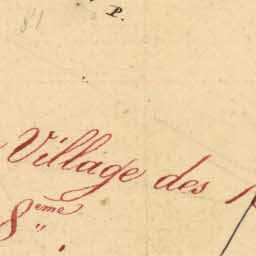 P.
Village des
8ème